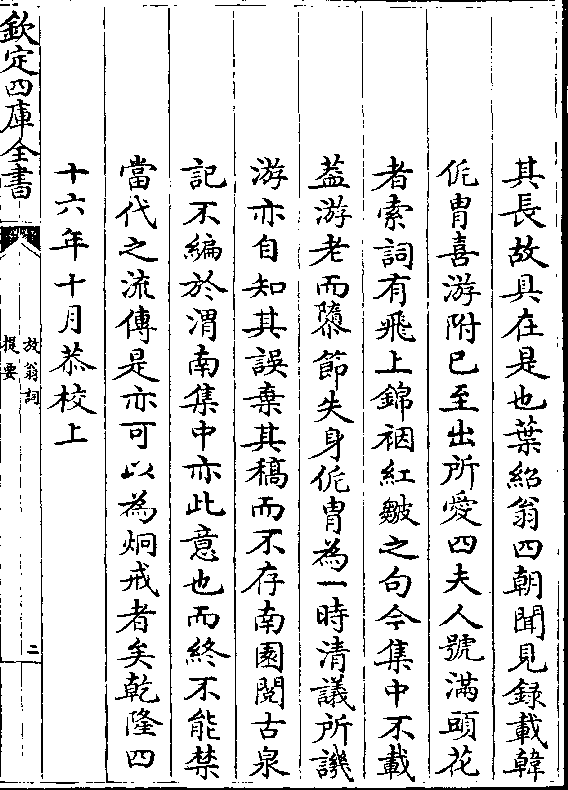 其長故具在是也葉紹翁四朝聞見錄載韓
侂胄喜游附已至出所愛四夫人號滿頭花
者索詞有飛上錦裀紅皺之句今集中不載
葢游老而隳節失身侂胄為一時清議所譏
游亦自知其誤棄其稿而不存南園閱古泉
記不編於渭南集中亦此意也而終不能禁
當代之流傳是亦可以為炯戒者矣乾隆四
十六年十月恭校上
欽定四庫全書
放翁詞
提要
二